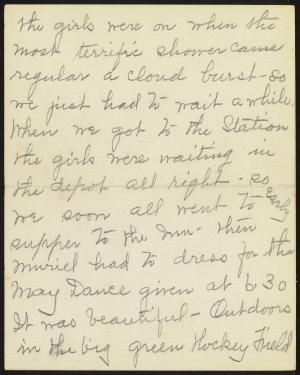 the girls were on when the
most terrific shower came
regular a cloud burst - so
we just had to wait a while.
When we got to the Station
the girls were waiting in
the depot all right - so
we soon all went to early
supper to the Inn - then
Muriel had to dress for the
May Dance given at 6 30
It was beautiful - Outdoors
in the big green Hockey Field